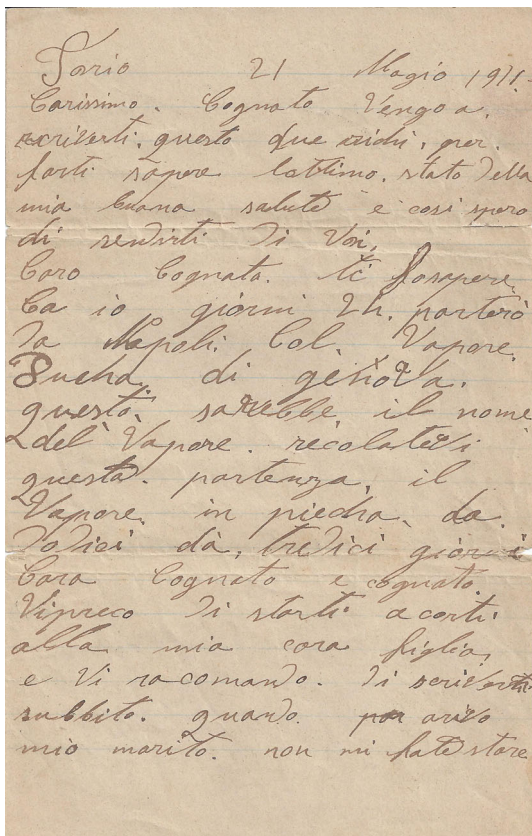 Torio 21 Magio 1911.
Carissimo. Cognato Vengo a.
scriverti. questo due righi. per.
farti sapere lottimo. stato della
mia buona salute e così spero
di sendirti di Voi,
Caro Cognato. ti fosapere,
Ca io giorni 24. parterò
da Napoli. Col. Vapore.
Ducha, di genova.
questo, sarebbe il nome
del Vapore. recolatevi
questa. partenza, il
Vapore. in piecha. da.
dodici dà, tredici giorni
Cara Cognato e cognata.
Vipreco di starti acorti
alla mia cara figlia,
e Vi racomando. di scriverti
subbito. quando. arivo
mio marito. non mi fate stare